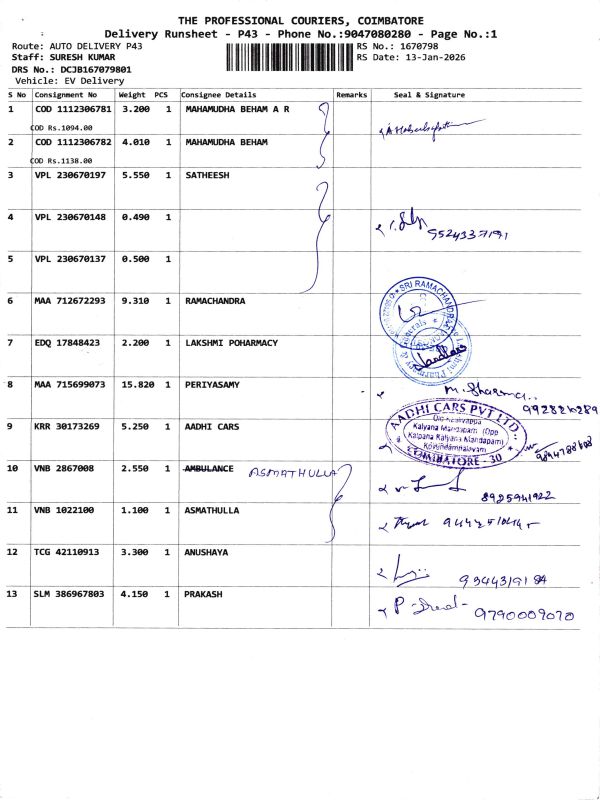 THE PROFESSIONAL COURIERS, COIMBATORE
Delivery Runsheet - P43 - Phone No.:9047080280 - Page No.:1
Route: AUTO DELIVERY P43 RS No.: 1670798
Staff: SURESH KUMAR RS Date: 13-Jan-2026
DRS No.: DCJB167079801
Vehicle: EV Delivery
S No Consignment No Weight PCS Consignee Details Remarks Seal & Signature
1 COD 1112306781 3.200 1 MAHAMUDHA BEHAM A R
COD Rs.1094.00
2 COD 1112306782 4.010 1 MAHAMUDHA BEHAM
COD Rs.1138.00
3 VPL 230670197 5.550 1 SATHEESH
4 VPL 230670148 0.490 1
9524337191
5 VPL 230670137 0.500 1
SRI RAMACHANDRA
6 MAA 712672293 9.310 1 RAMACHANDRA
7 EDQ 17848423 2.200 1 LAKSHMI POHARMACY
8 MAA 715699073 15.820 1 PERIYASAMY M. Sharma..
9928210289
AADHI CARS PVT LTD.,
Kalyana Mandapam (Opp
Kalpana Kalyana Mandapam)
COIMBATORE - 30
9 KRR 30173269 5.250 1 AADHI CARS
10 VNB 2867008 2.550 1 AMBULANCE ASMATHULLA
8925941922
11 VNB 1022100 1.100 1 ASMATHULLA
12 TCG 42110913 3.300 1 ANUSHAYA
13 SLM 386967803 4.150 1 PRAKASH
9790009070